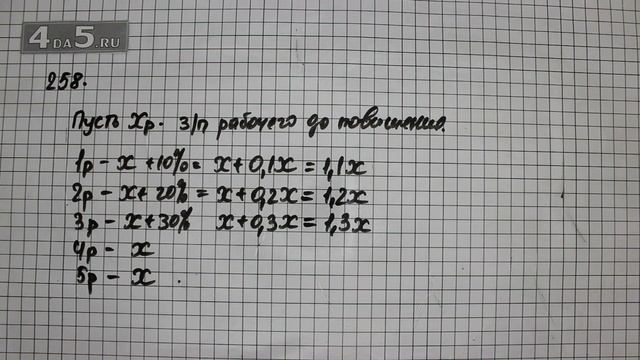 4DA5.RU
258.
Пусть Xр. з/п рабочего до повышения.
1р - x + 10% = x + 0,1x = 1,1x
2р - x + 20% = x + 0,2x = 1,2x
3р - x + 30% x + 0,3x = 1,3x
4р - x
5р - x .